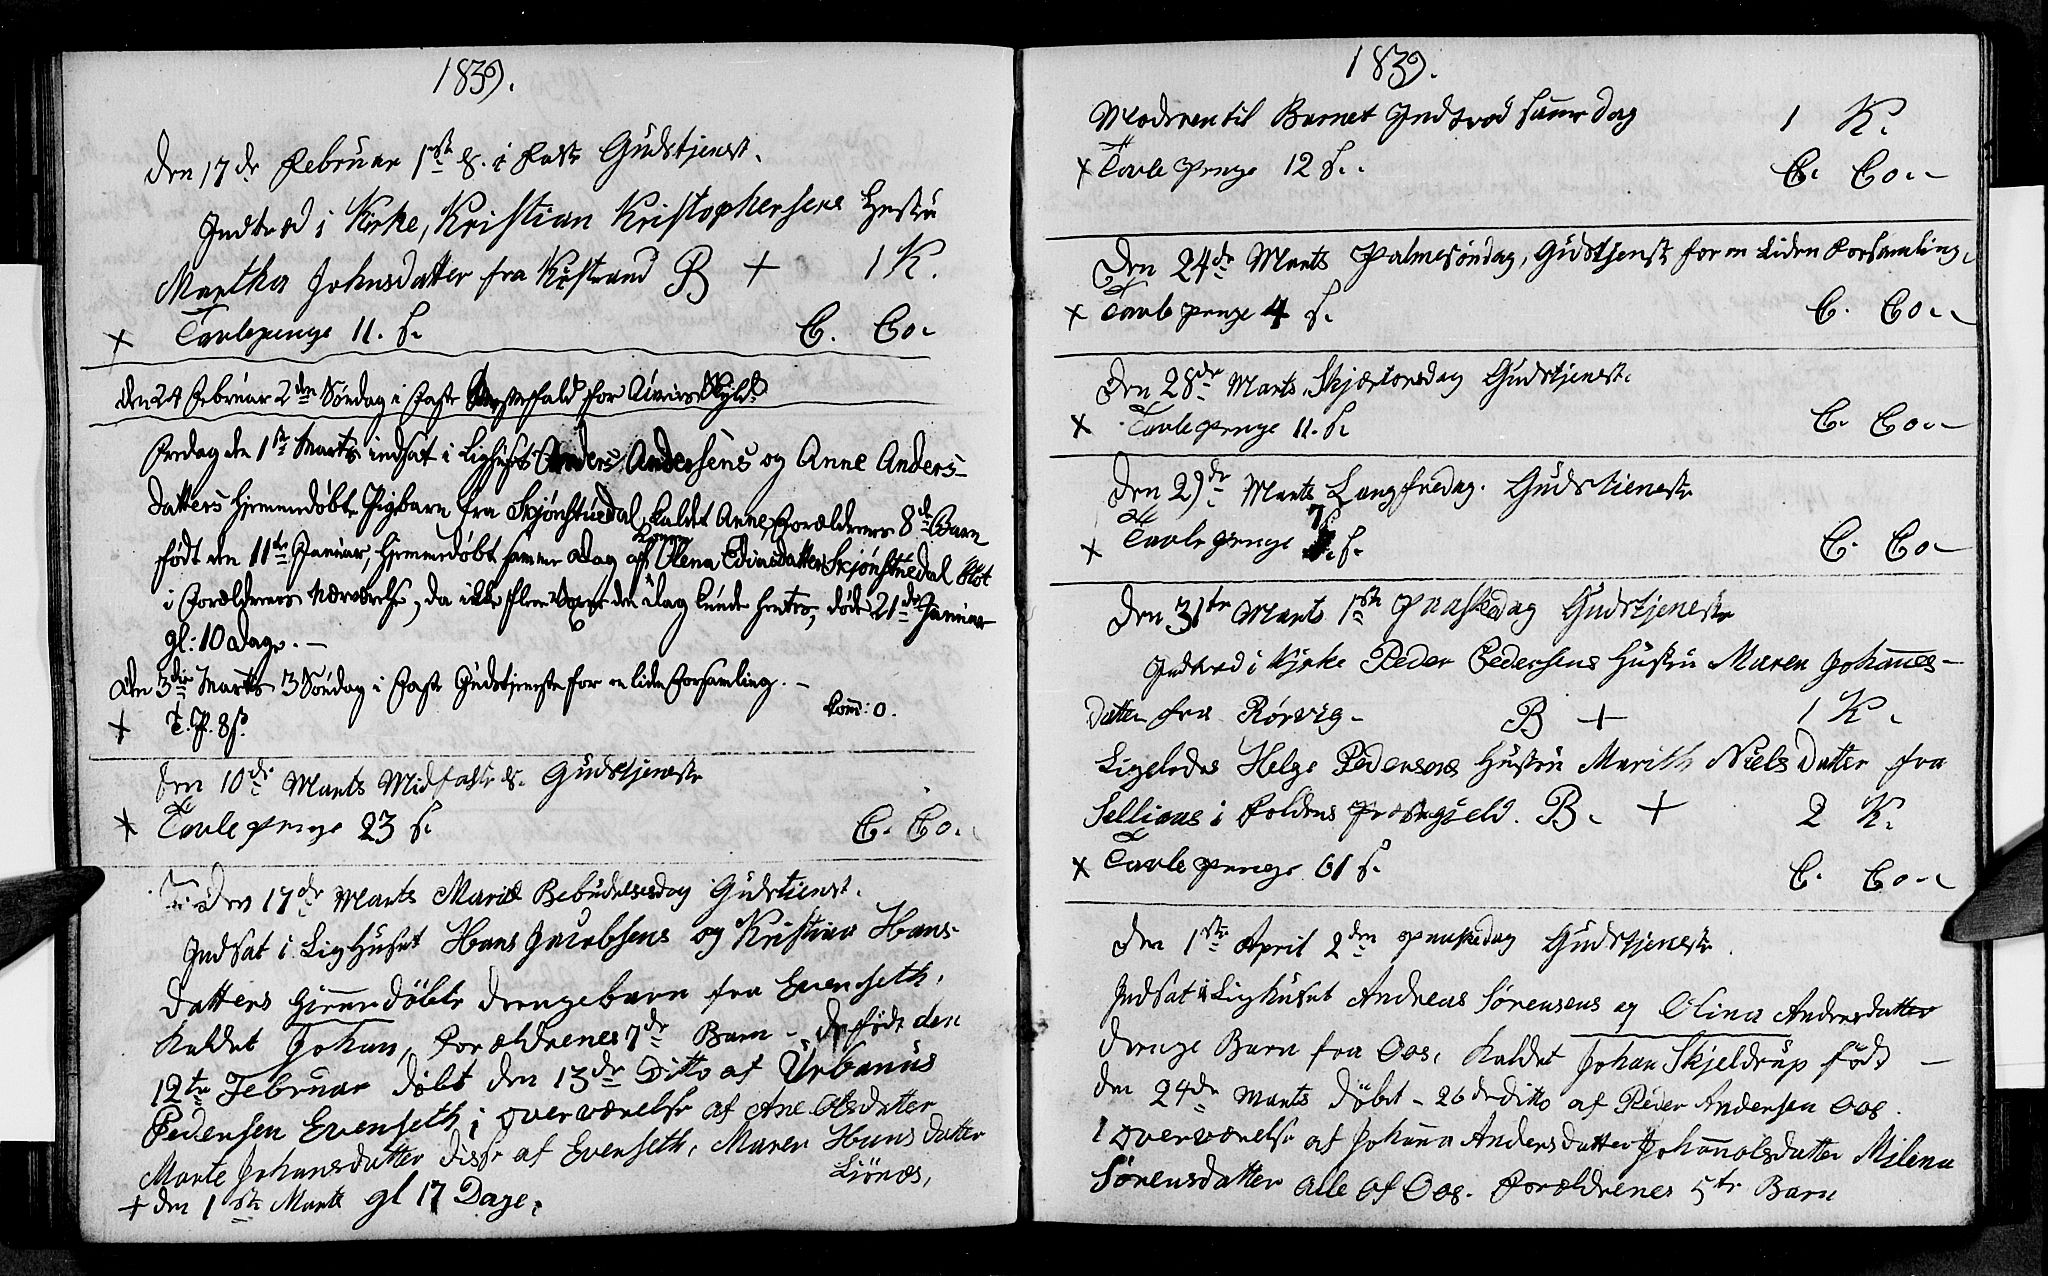 1839.
Den 17de Februar 1ste S. i Faste Gudstjenest.
Indtræd i Kirke, Kristian Kristophersens Hustru
Martha Johnsdatter fra Kistrand B + 1 K.
+ Tavlepenge 11. s. C. C o.
den 24 Februar 2den Søndag i Faste Messefald for Uveirs Skyld.
Fredag den 1ste Marts indsat i Lighuset Anders Andersens og Anne Anders-
datters hjemmedøbte Pigbarn fra Skjønstuedal, kaldet Anne, Forældrenes 8de Barn
født den 11te Januar, hjemmedøbt samme Dag af Olena Edvinsdatter Skjønstuedal
i Forældrenes Nærværelse, da ikke flere den Dag kunde hentes, døde 21de Januar
gl: 10 Dage. —
Den 3die Marts 3 Søndag i Faste Gudstjeneste for en liden Forsamling. —
+ T. P. 8 s. Com: 0.
Den 10de Marts Midfaste S. Gudstjeneste
+ Tavlepenge 23 s. C. C o.
Den 17de Marts Mariæ Bebudelsesdag Gudstienst.
Indsat i LigHuset Hans Jacobsens og Kristina Hans-
datters Hjemmedøbte drengebarn fra Evenseth,
Kaldet Johan, Forældrenes 7de Barn - født den
12te Februar døbt den 13de Ditto af Urbanus
Pedersen Evenseth i overværelse af Ane Olsdatter
Marte Johansdatter disse af Evenseth, Maren Hansdatter
Liønæs,
+ den 1ste Marts gl 17 Dage.
1839.
Modren til Barnet Indtræd samme Dag 1 K.
+ Tavle penge 12 s. C. C o.
Den 24de Marts Palmesøndag, Gudstjenst for en Liden Forsamling.
+ Tavle penge 4 s. C. C o.
Den 28de Marts Skjærtorsdag Gudstjenest.
+ Tavle penge 11. s. C. C o.
Den 29de Marts Langfredag. Gudstieneste
+ Tavle penge 7 s. C. C o.
Den 31te Marts 1ste Paaskedag Gudstjeneste
Indtræd i Kjrke Peder Pedersens Hustru Maren Johannes-
datter fra Rørvig. B + 1 K.
Ligeledes Helge Pedersens Hustru Marith Nielsdatter fra
Selliaas i Foldens Præstegjeld. B. + 2 K.
+ Tavle penge 61 s. C. C o.
Den 1ste April 2den Paaskedag Gudstjeneste.
Indsat i Lighuset Andreas Sørensens og Olina Andersdatter
drenge Barn fra Oos, Kaldet Johan Skjeldrup født
den 24de Marts døbt - 26de ditto af Peder Andersen Oos.
i overværelse af Johanna Andersdatter Johanna olsdatter Milena
Sørensdatter alle af Oos. Forældrenes 5te Barn